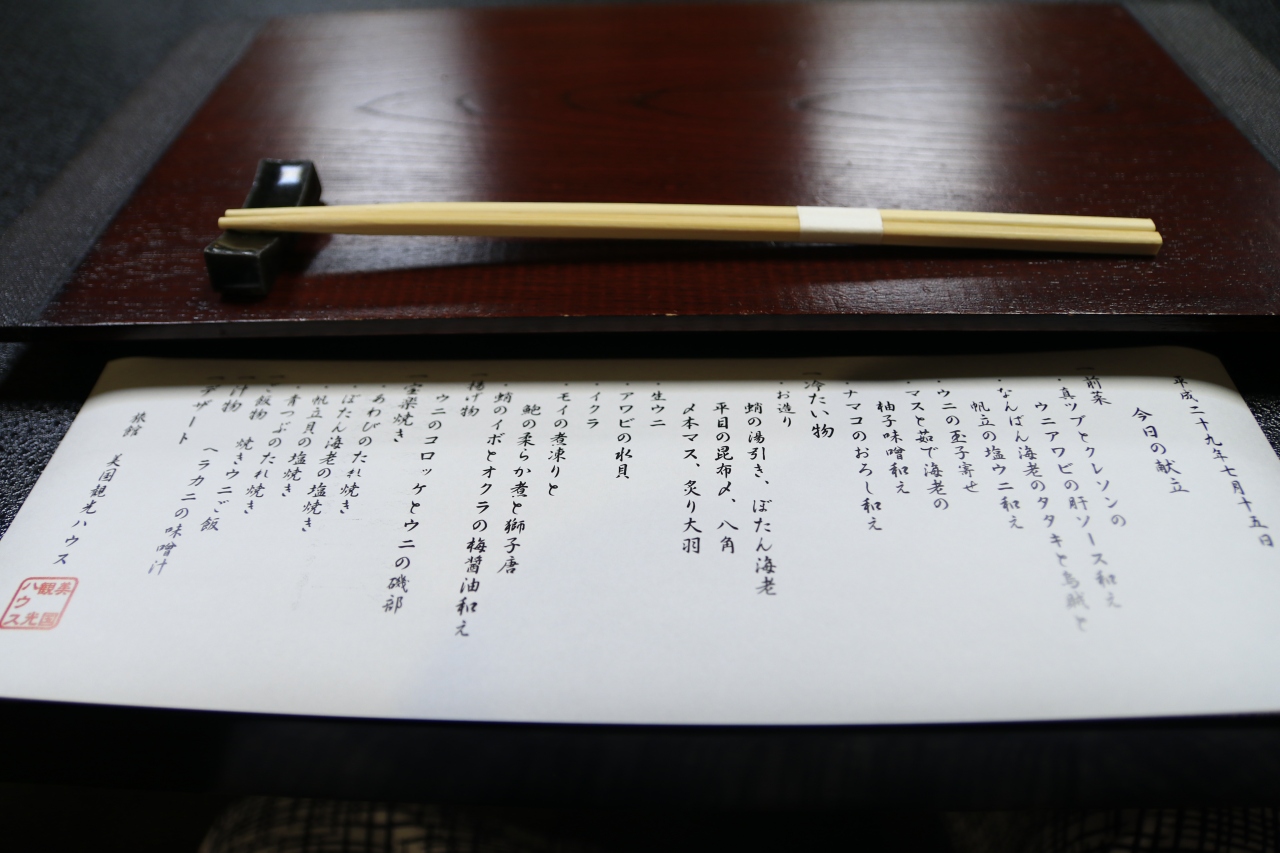 平成二十九年七月十五日
今日の献立
一前菜
・真ツブとクレソンの
ウニアワビの肝ソース和え
・なんばん海老のタタキと烏賊と
帆立の塩ウニ和え
・ウニの玉子寄せ
・マスと茹で海老の
柚子味噌和え
・ナマコのおろし和え
一冷たい物
・お造り
蛸の湯引き、ぼたん海老
平目の昆布〆、八角
〆本マス、炙り大羽
・生ウニ
・アワビの水貝
・イクラ
・モイの煮凍りと
鮑の柔らか煮と獅子唐
・蛸のイボとオクラの梅醤油和え
一揚げ物
ウニのコロッケとウニの磯部
一宝楽焼き
・あわびのたれ焼き
・ぼたん海老の塩焼き
・帆立貝の塩焼き
・青つぶのたれ焼き
一ご飯物 焼きウニご飯
一汁物 ヘラカニの味噌汁
一デザート
旅館 美国観光ハウス
美国
観光
ハウス